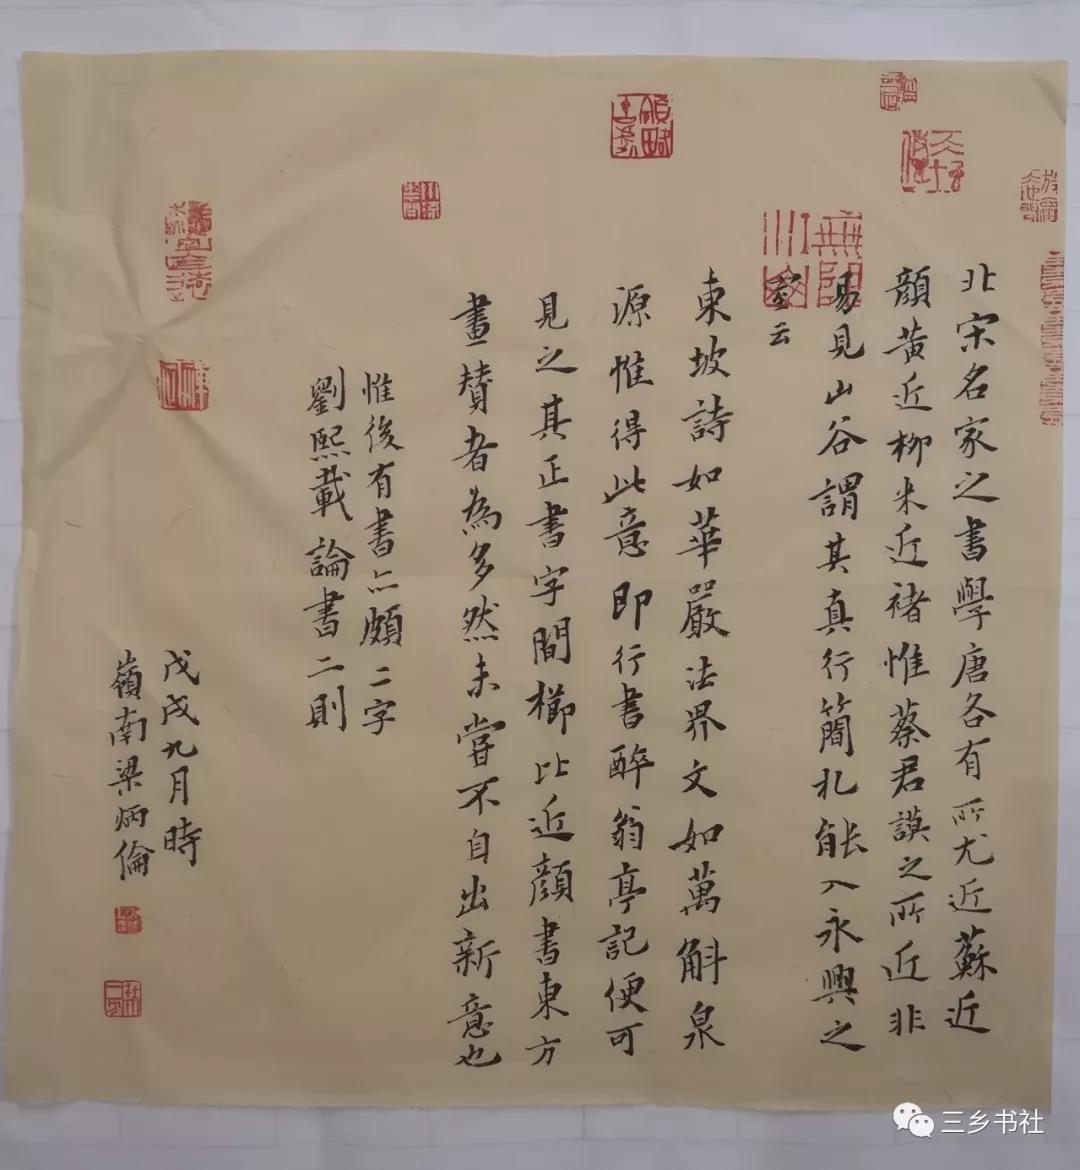 北宋名家之書學唐各有所尤近蘇近
顔黄近柳米近褚惟蔡君謨之所近非
易見山谷謂其真行簡札能入永興之
室云
東坡詩如華嚴法界文如萬斛泉
源惟得此意即行書醉翁亭記便可
見之其正書字間櫛比近顔書東方
畫賛者為多然未嘗不自出新意也
惟後有書亦頗二字
劉熙載論書二則
戊戌九月時
嶺南梁炳倫
三乡书社